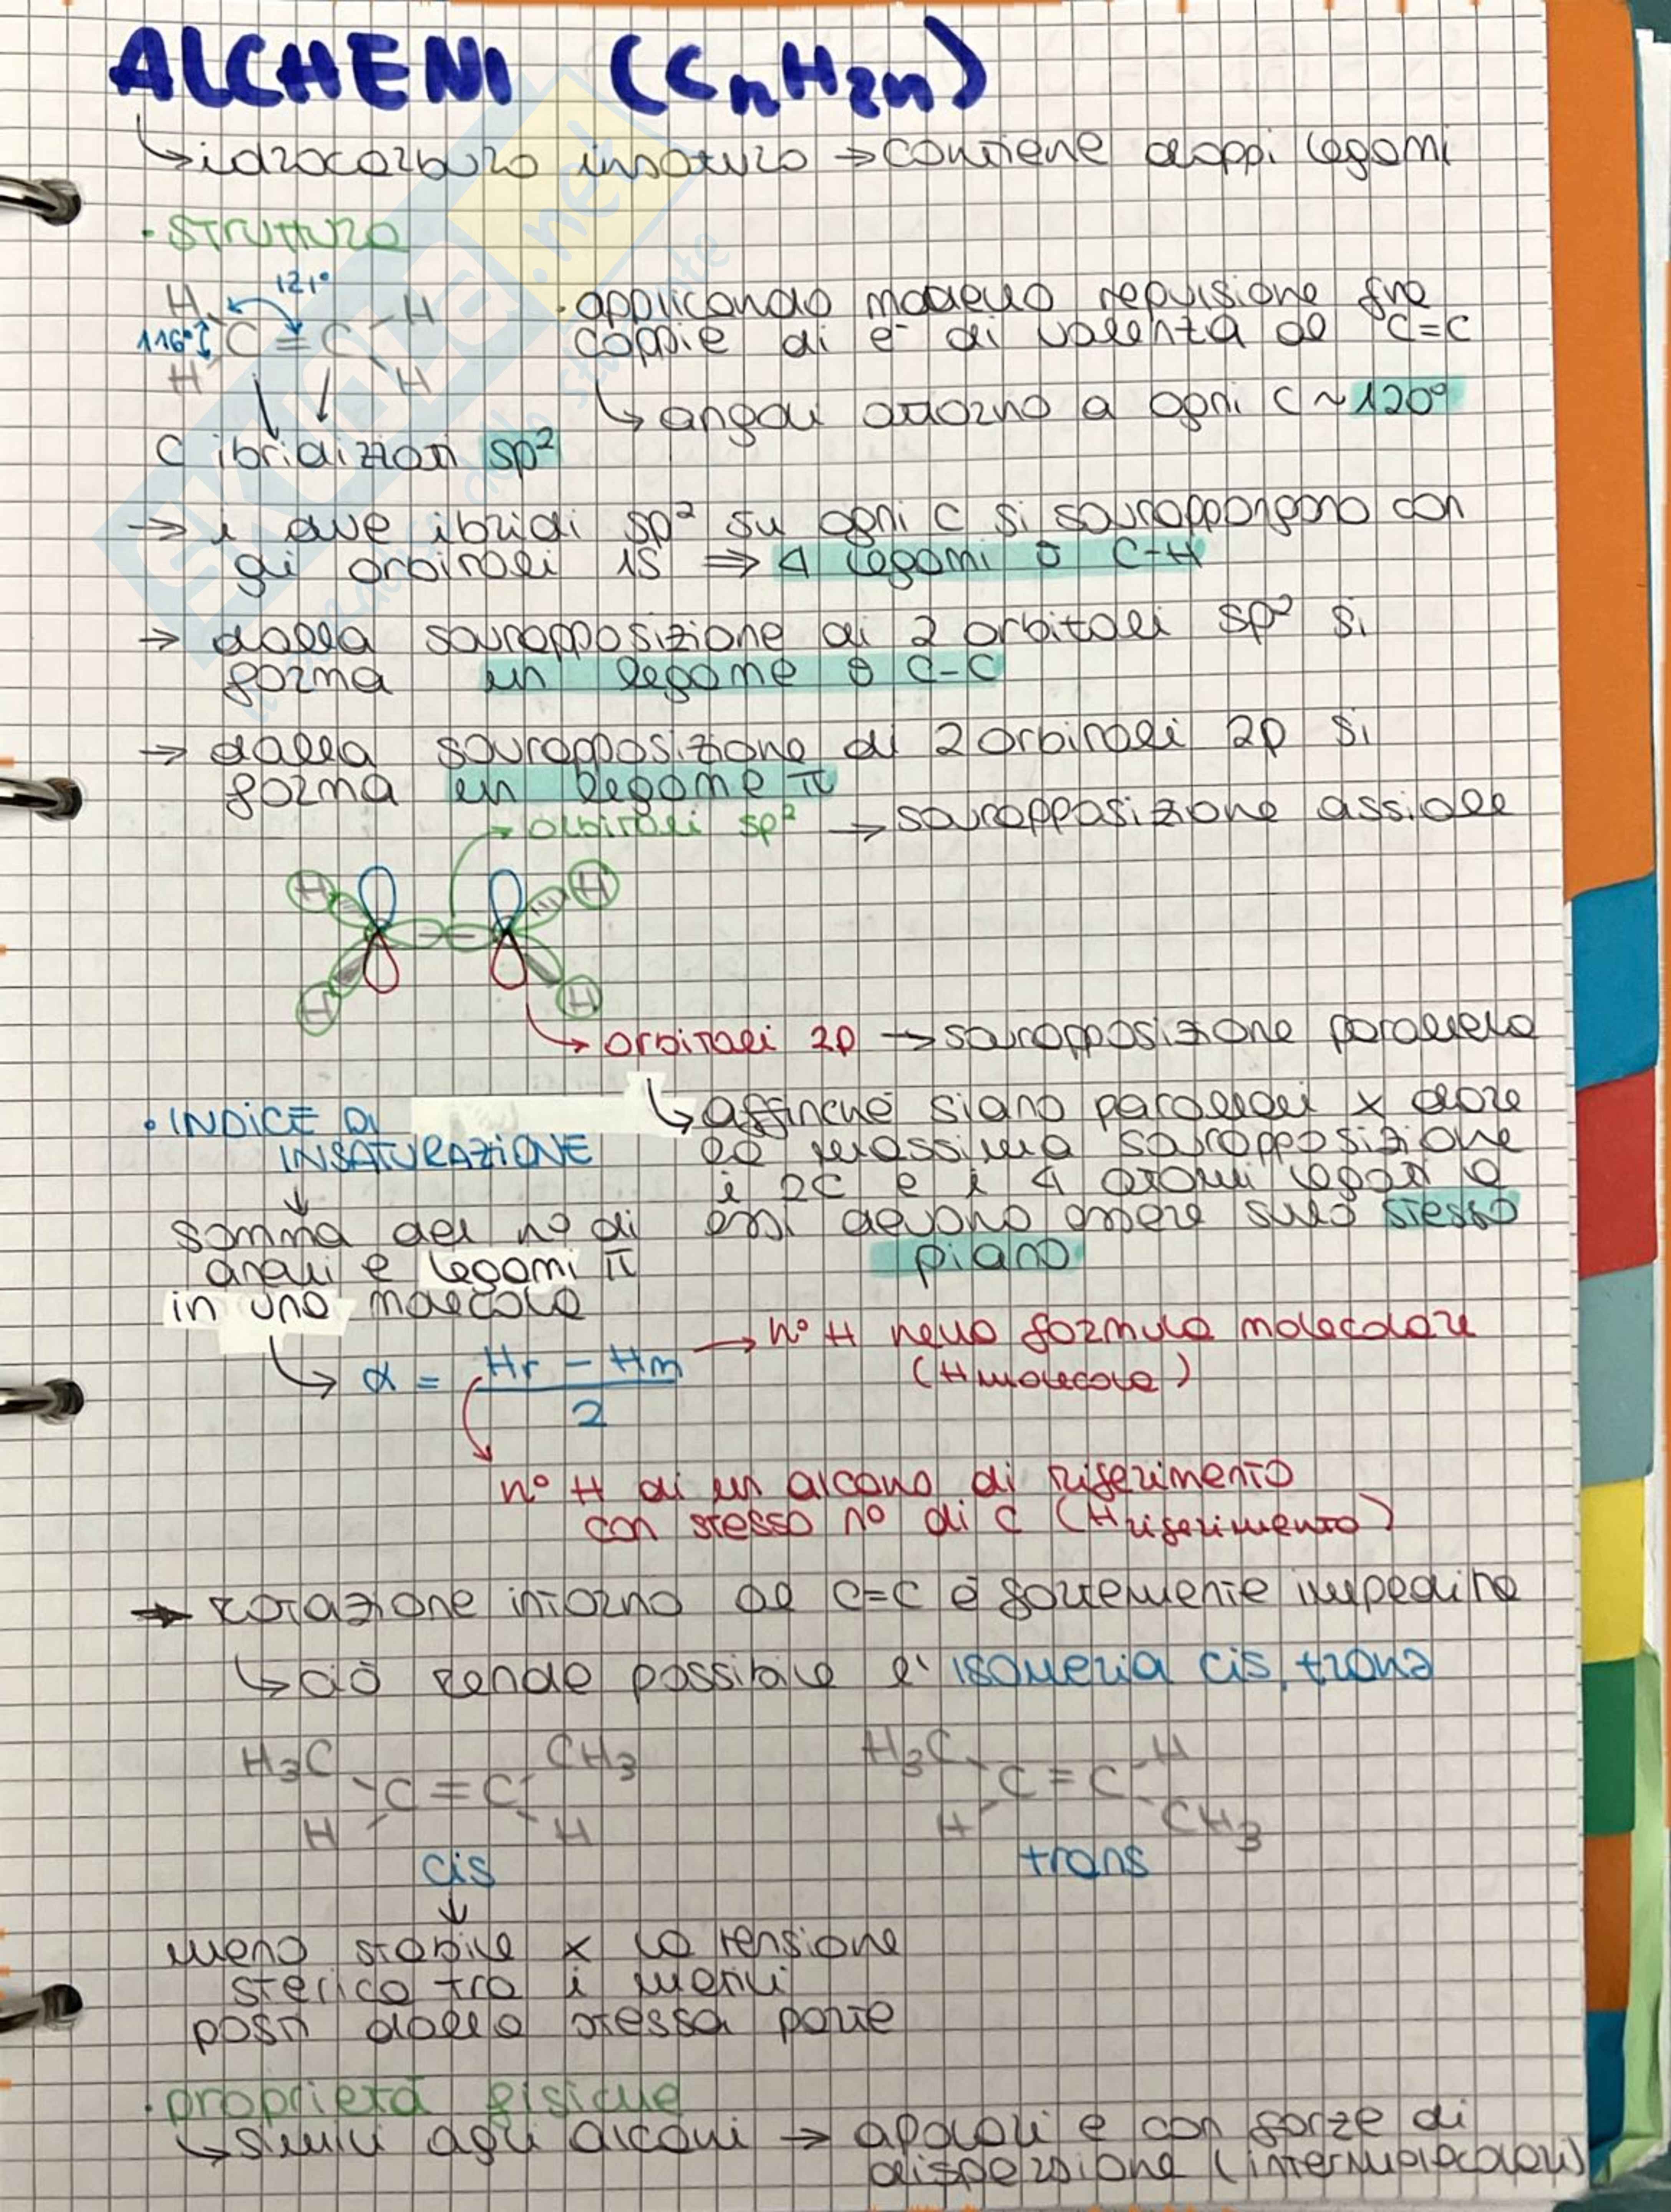 ALCHENI (CnH2n)
↳ idrocarburo insaturo → contiene doppi legami
• struttura
121°
H H
116° C = C
H H
• applicando modello repulsione fra
coppie di e⁻ di valenza al C=C
↳ angoli attorno a ogni C ~ 120°
C ibridizzati sp²
→ i due ibridi sp² su ogni C si sovrappongono con
gli orbitali 1s ⇒ 4 legami σ C-H
→ dalla sovrapposizione di 2 orbitali sp² si
forma un legame σ C-C
→ dalla sovrapposizione di 2 orbitali 2p si
forma un legame π
→ orbitali sp² → sovrapposizione assiale
H H
H H
→ orbitali 2p → sovrapposizione parallela
↳ affinché siano paralleli x dare
la massima sovrapposizione
i 2C e i 4 atomi legati a
essi devono essere sullo stesso
piano
• INDICE DI
INSATURAZIONE
↓
somma del n° di
anelli e legami π
in una molecola
↳ α = Hr - Hm / 2
→ n° H nella formula molecolare
(Hmolecola)
n° H di un alcano di riferimento
con stesso n° di C (Hriferimento)
→ rotazione intorno al C=C è fortemente impedita
↳ ciò rende possibile l'isomeria cis, trans
H3C CH3
C = C
H H
cis
H3C H
C = C
H CH3
trans
↓
meno stabile x la tensione
sterica tra i metili
posti dalla stessa parte
• proprietà fisiche
↳ simili agli alcani → apolari e con forze di
dispersione (intermolecolari)
SKUOLA.net